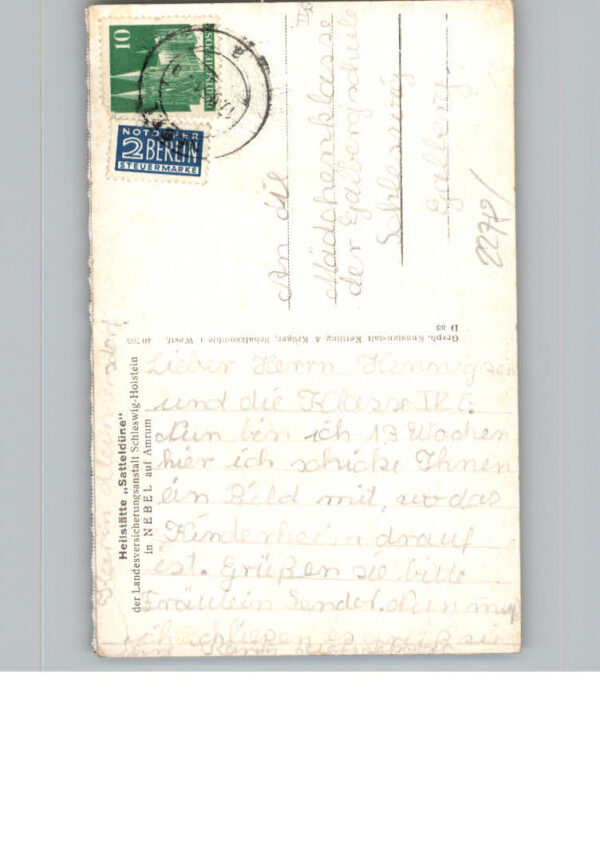 10
DEUTSCHE POST
NOTOPFER
2 BERLIN
STEUERMARKE
An die
Mädchenklasse
der Galbergschule
Schleswig
Galberg
D 83
Graph. Kunstanstalt Ketling & Krüger, Schalksmühle i. Westf.
Heilstätte „Satteldüne"
der Landesversicherungsanstalt Schleswig-Holstein
in NEBEL auf Amrum
Lieber Herrn Henningsen
und die Klasse
Nun bin ich 13 Wochen
hier ich schicke Ihnen
ein Bild mit, wo das
Kinderheim drauf
ist. Grüßen sie bitte
Fräulein Sendel. Nun muß
ich schließen es grüßt sie
Karin